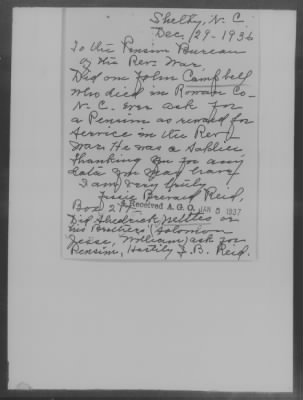 Shelby, N.C.
Dec, 29-1936
To the Pension Bureau
of the Rev. War,
Did one John Campbell
who died in Rowan Co-
N.C. ever ask for
a Pension as reward for
service in the Rev.
War. He was a soldier
Thanking you for any
data you may have
I am very truly
Brevard Reid,
Box
Received A.G.O. JAN 5 1937
Did Shedrick Nettles or
his Brothers (Solomon
Jesse, William) ask for
Pension, Hastily F.B. Reid.